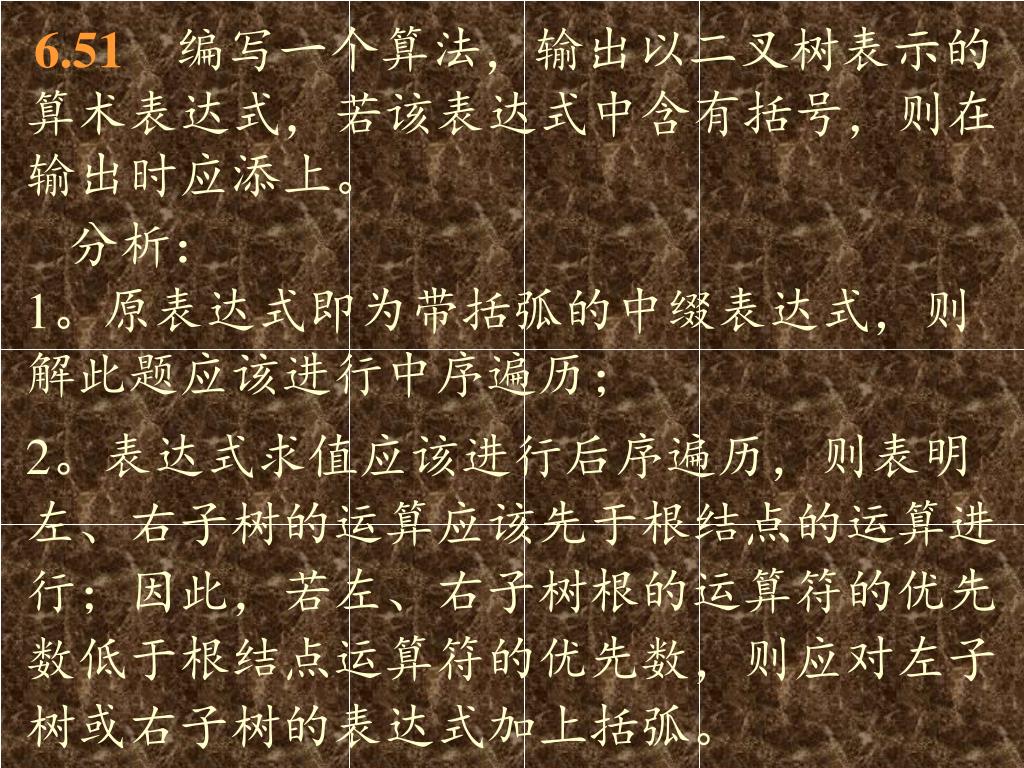 6.51 编写一个算法，输出以二叉树表示的
算术表达式，若该表达式中含有括号，则在
输出时应添上。
分析：
1。原表达式即为带括弧的中缀表达式，则
解此题应该进行中序遍历；
2。表达式求值应该进行后序遍历，则表明
左、右子树的运算应该先于根结点的运算进
行；因此，若左、右子树根的运算符的优先
数低于根结点运算符的优先数，则应对左子
树或右子树的表达式加上括弧。